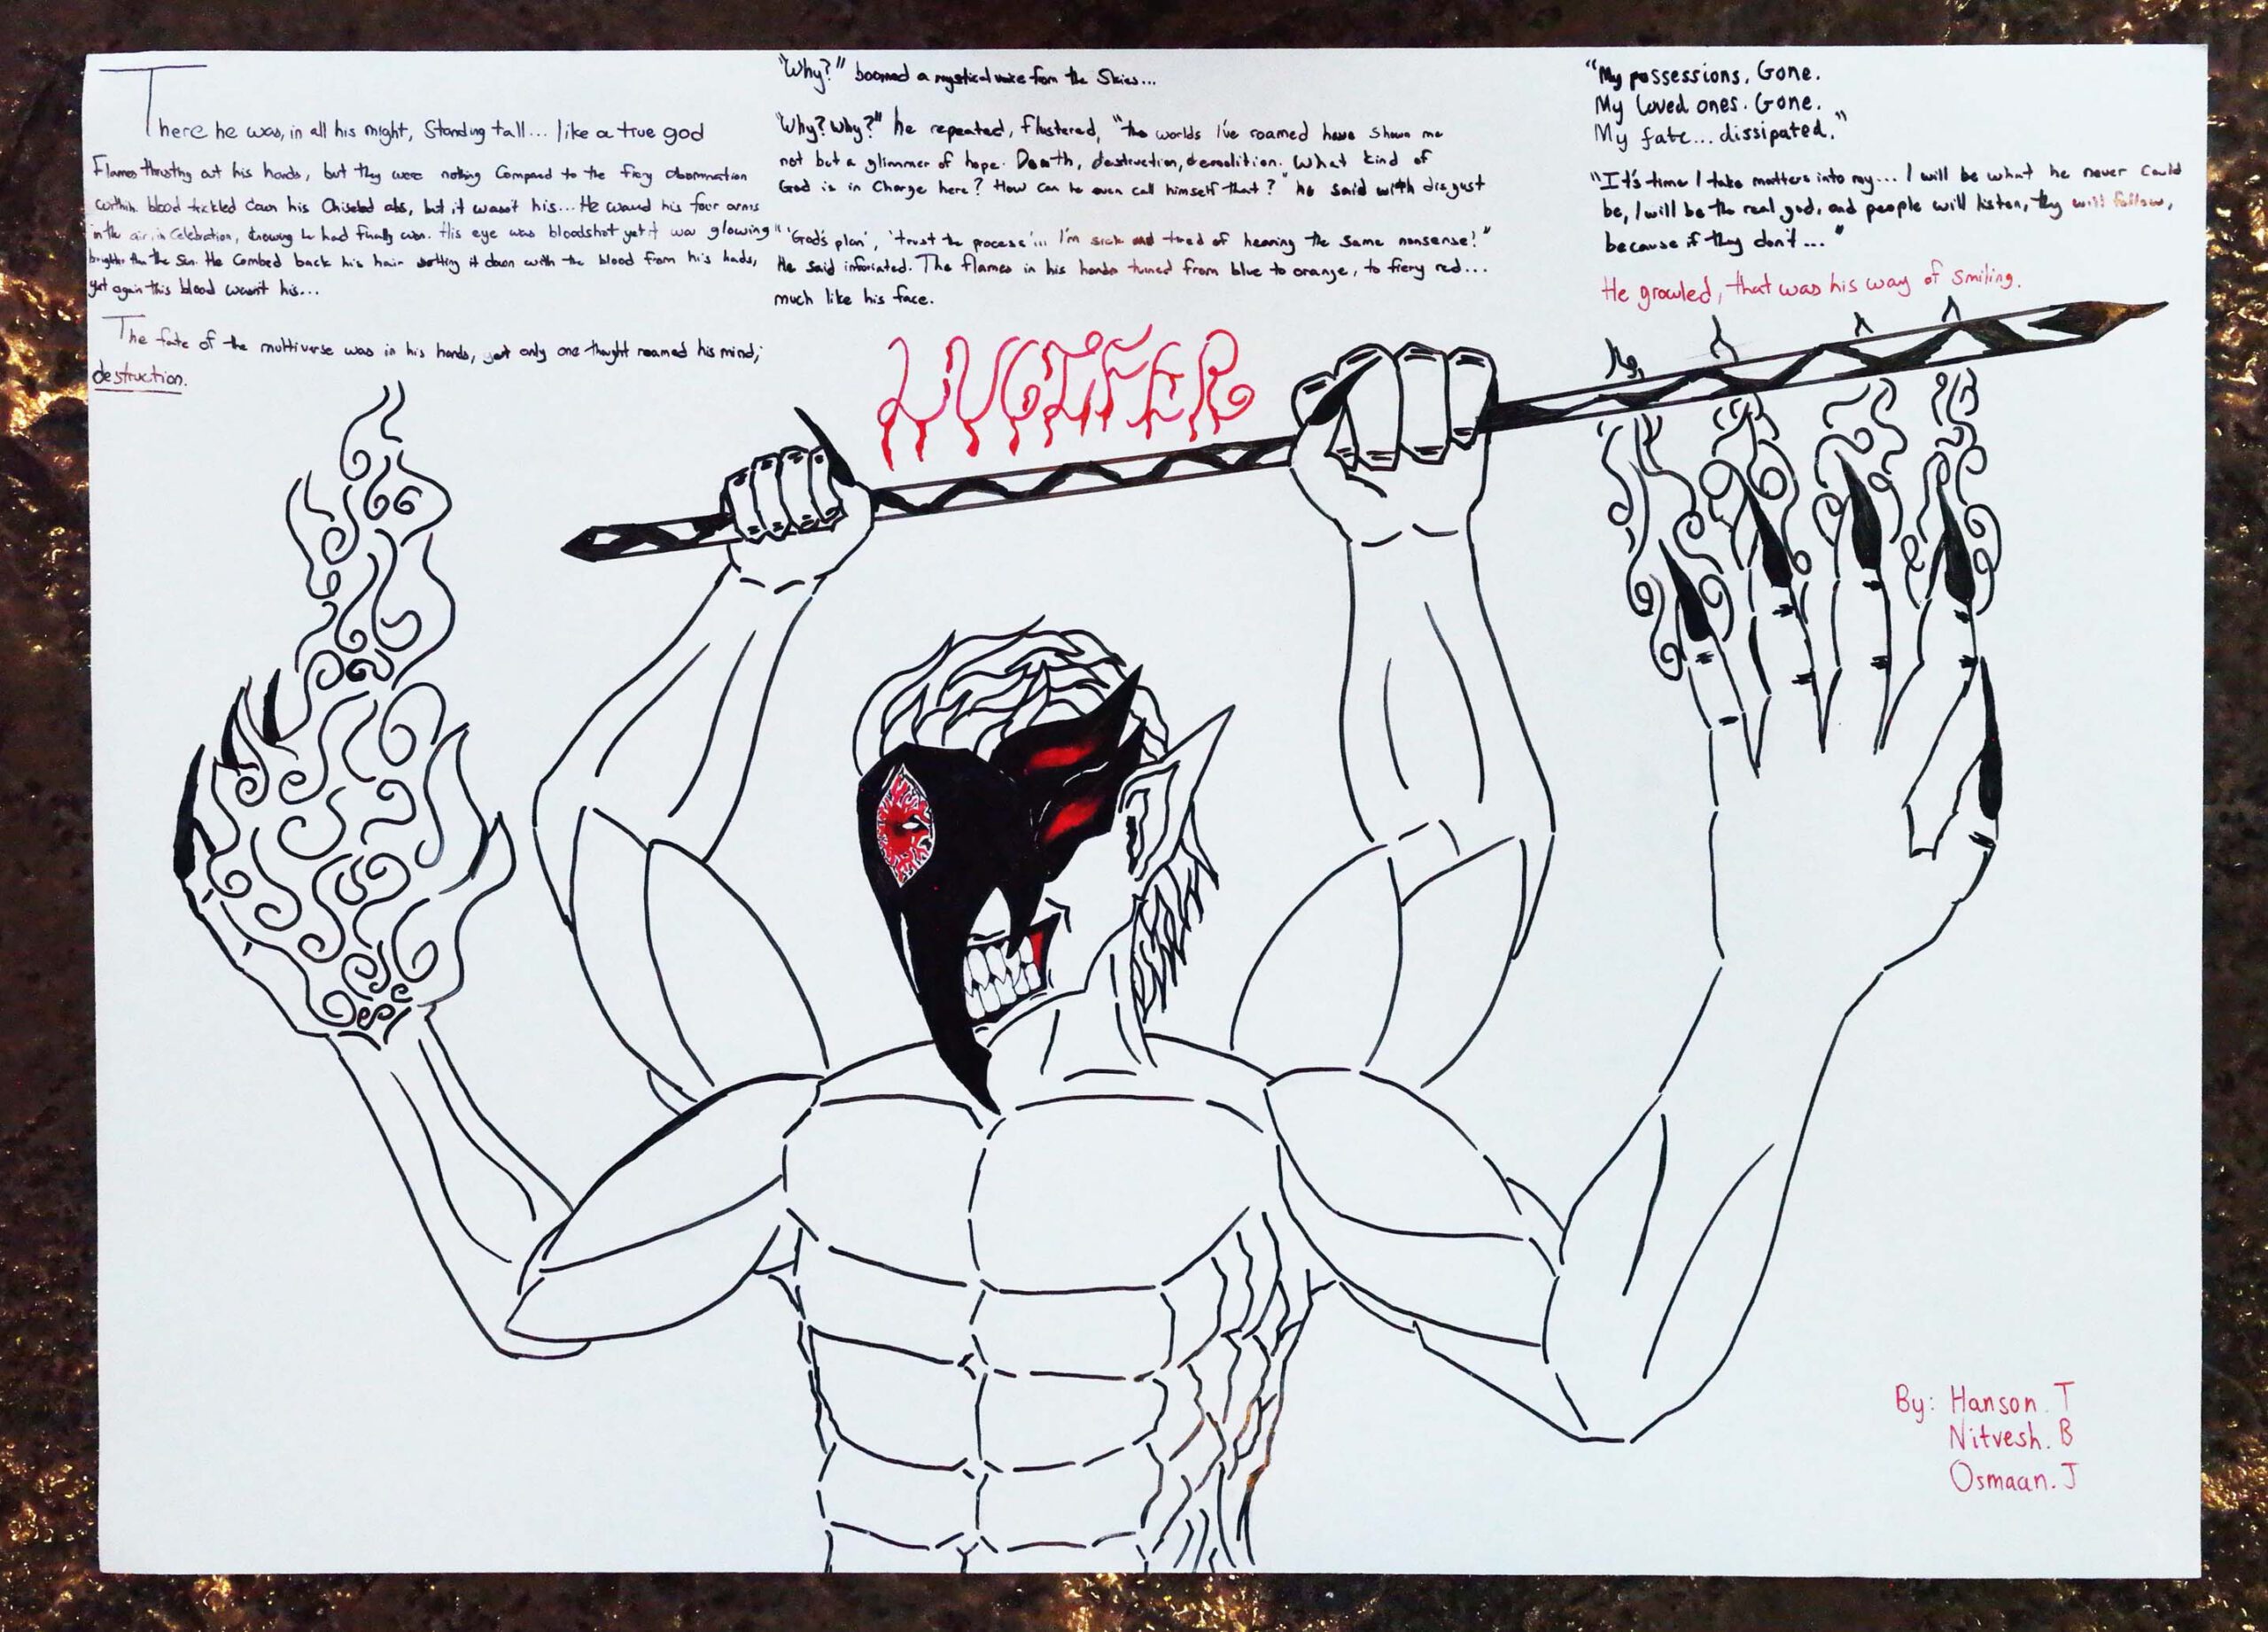 There he was, in all his might, Standing tall... like a true god
Flames thrusting out his hands, but they were nothing Compared to the fiery abomination
within. blood trickled down his Chiseled abs, but it wasn't his... He waved his four arms
in the air, in Celebration, knowing he had finally won. His eye was bloodshot yet it was glowing
brighter than the Sun. He Combed back his hair setting it down with the blood from his hads,
yet again this blood wasn't his...
The fate of the multiverse was in his hands, yet only one thought roamed his mind;
destruction.
"Why?" boomed a mystical voice from the Skies...
"Why? Why?" he repeated, flustered, "the worlds I've roamed have shown me
not but a glimmer of hope. Death, destruction, demolition. What kind of
God is in Charge here? How can he even call himself that?" he said with disgust
"'God's plan', 'trust the process'... I'm sick and tired of hearing the same nonsense!"
He said infuriated. The flames in his hands turned from blue to orange, to fiery red...
much like his face.
"My possessions. Gone.
My loved ones. Gone.
My fate... dissipated."
"It's time I take matters into my... I will be what he never could
be, I will be the real god, and people will listen, they will follow,
because if they don't..."
He growled, that was his way of smiling.
LUCIFER
By: Hanson. T
Nitvesh. B
Osmaan. J